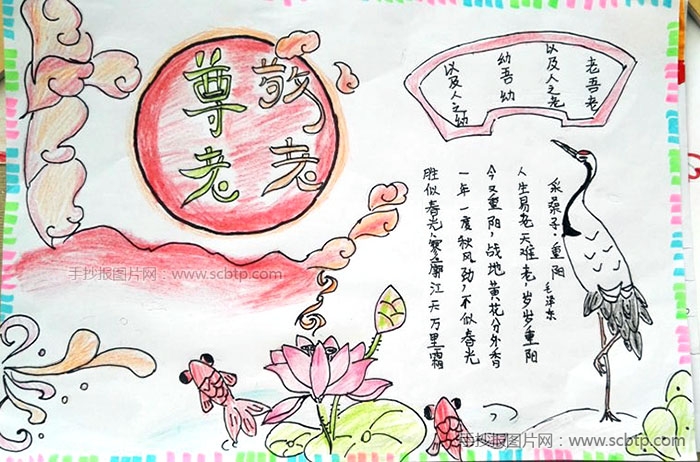 老吾老
以及人之老
幼吾幼
以及人之幼
敬老
尊老
采桑子·重阳
毛泽东
人生易老天难老,岁岁重阳
今又重阳,战地黄花分外香
一年一度秋风劲,不似春光
胜似春光,寥廓江天万里霜
手抄报图片网:www.scbtp.com
手抄报图片网:www.scbtp.com